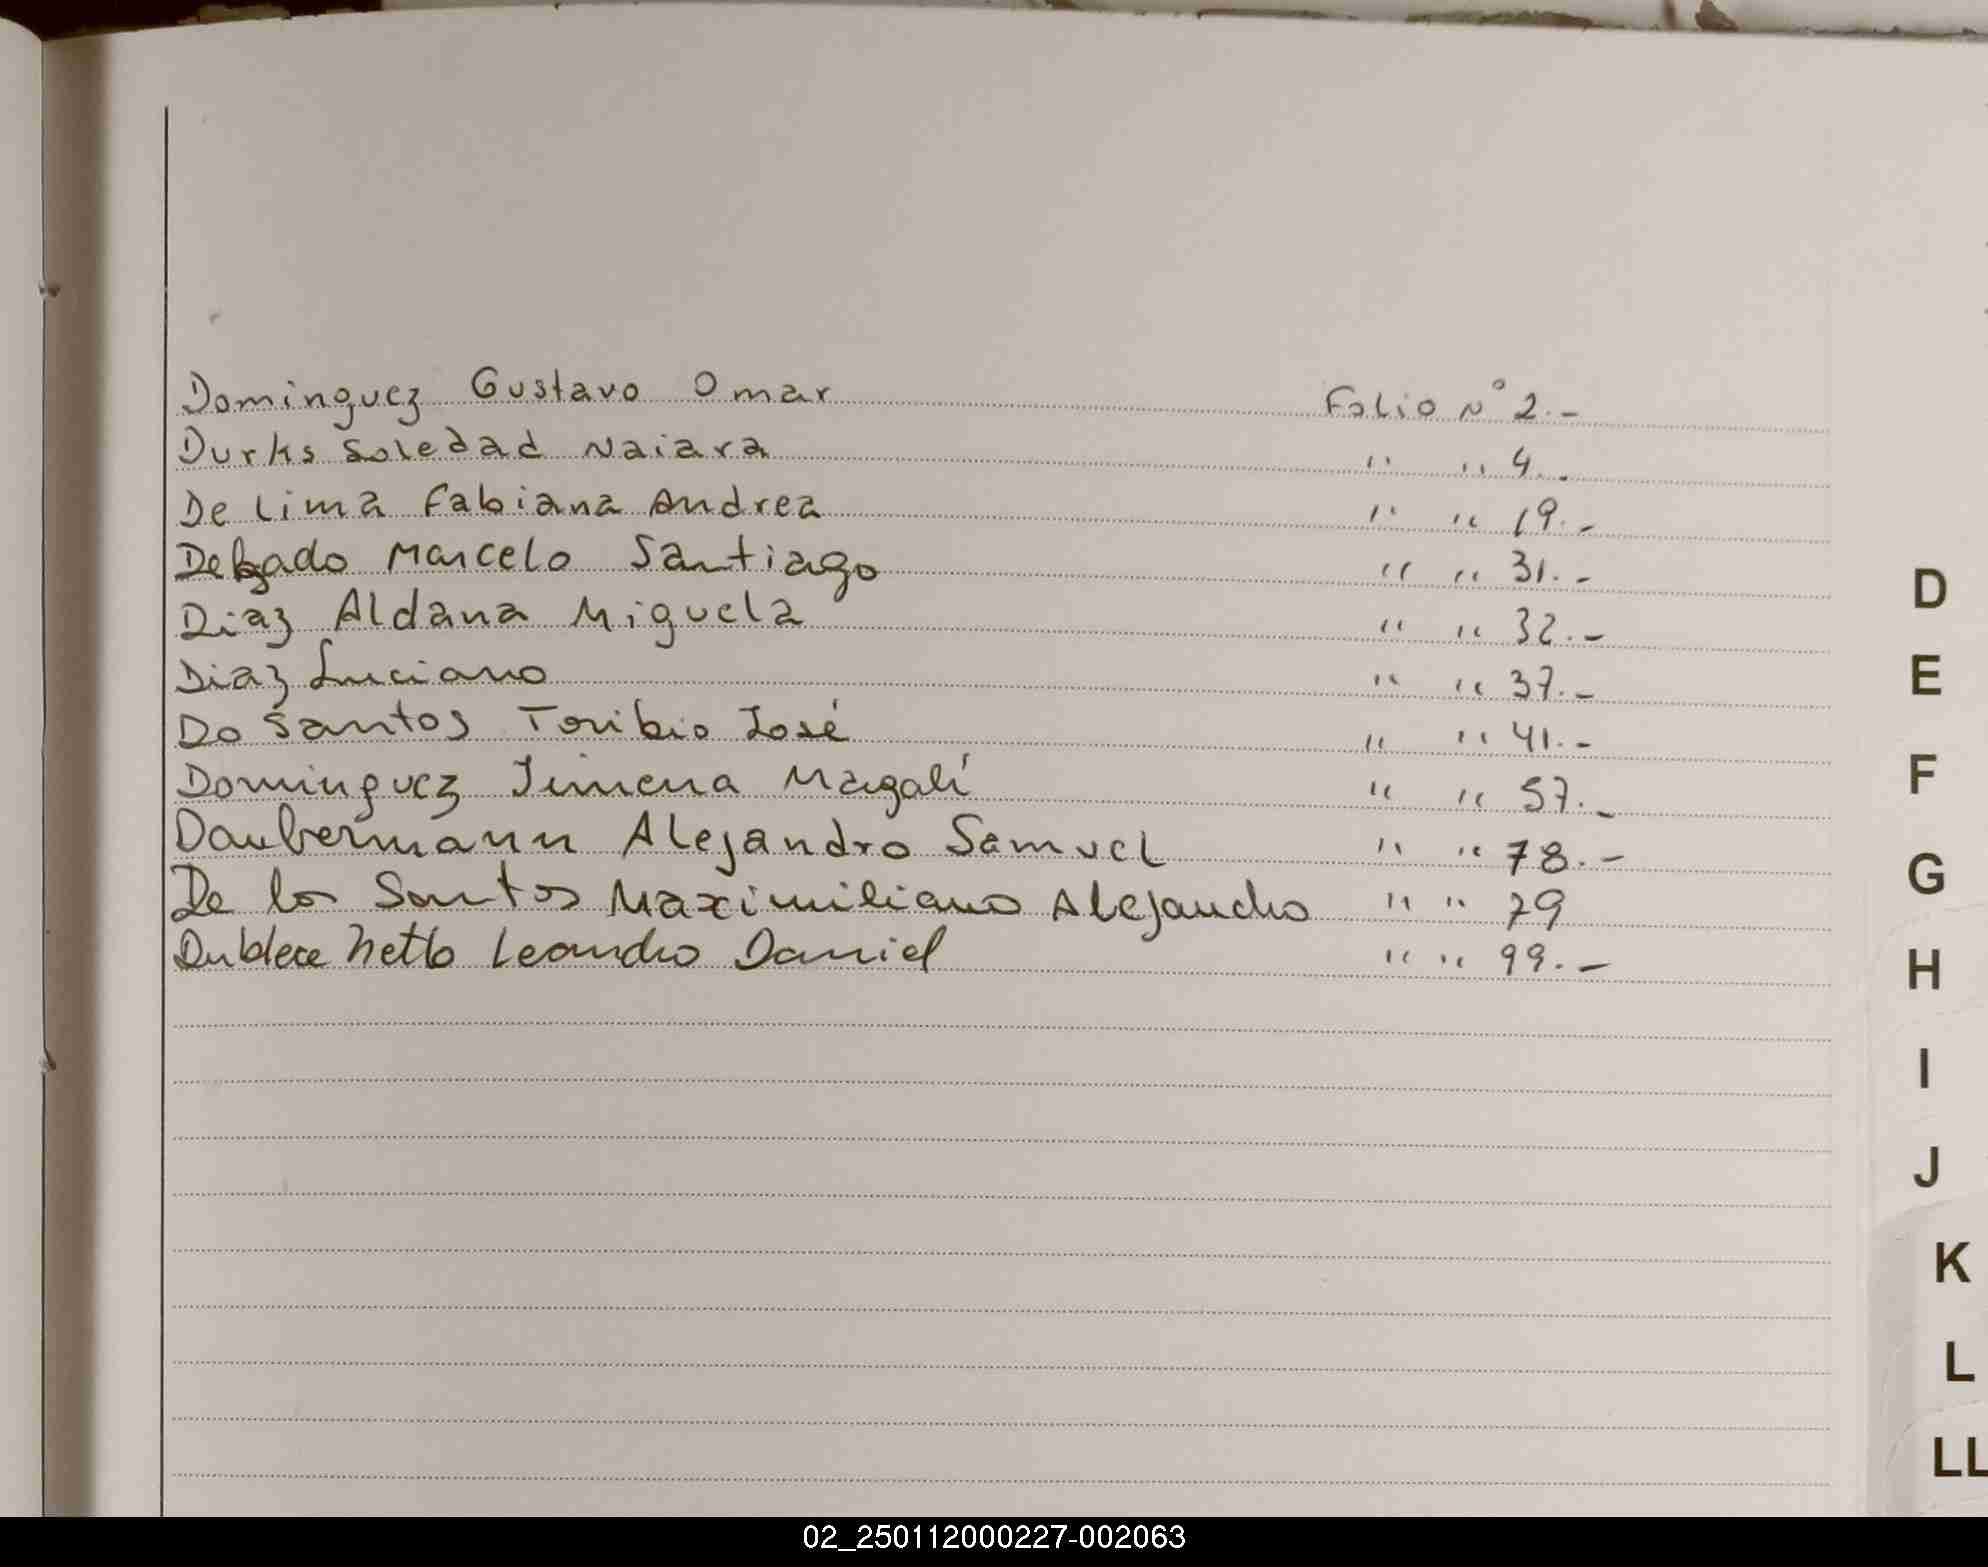 Dominguez Gustavo Omar Folio N° 2.-
Durks Soledad Naiara " " 4.-
De Lima Fabiana Andrea " " 19.-
Delgado Marcelo Santiago " " 31.-
Diaz Aldana Miguela " " 32.-
Diaz Luciano " " 37.-
Do Santos Toribio José " " 41.-
Dominguez Jimena Magalí " " 57.-
Daubermann Alejandro Samuel " " 78.-
De los Santos Maximiliano Alejandro " " 79
Netto Leandro Daniel " " 99.-
D
E
F
G
H
I
J
K
L
LL
02_250112000227-002063